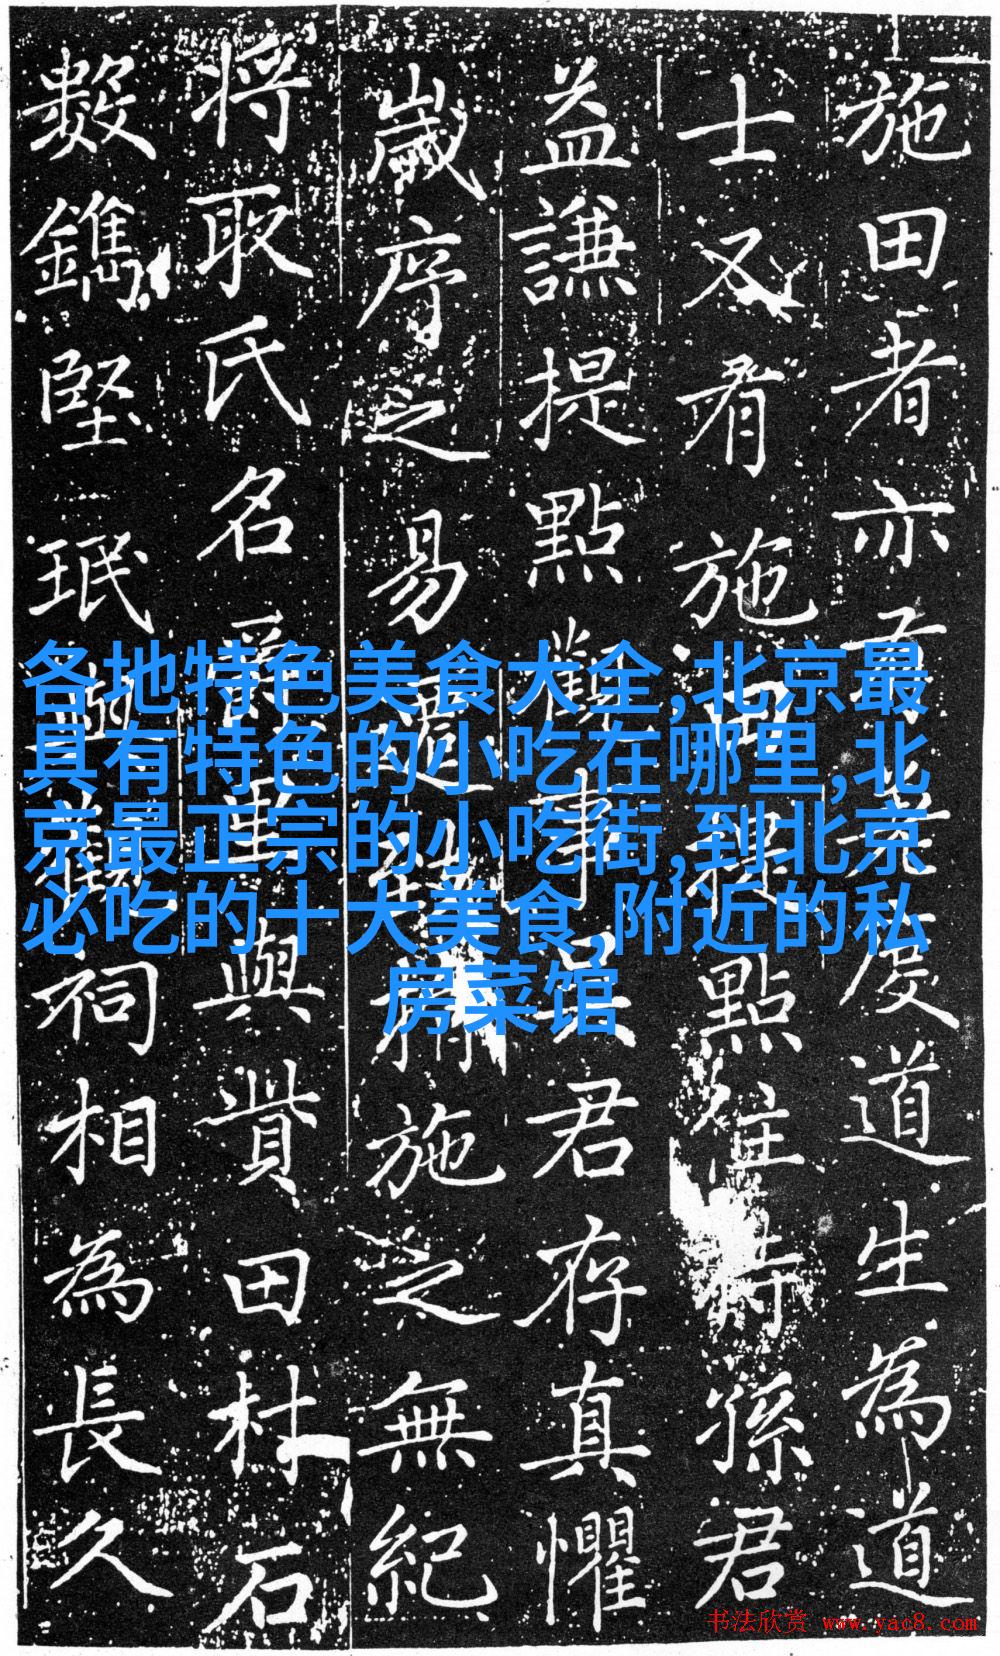 施田者亦
度道生為道
士又有施
點
孫君
益謙提點
事吴君存真懼
歲序之易
施之無紀
將取氏名
與貲田
石
數鐫堅珉
祠相為長久
各地特色美食大全,北京最
具有特色的小吃在哪里,北
京最正宗的小吃街,到北京
必吃的十大美食,附近的私
房菜馆
书法欣赏 www.yac8.com